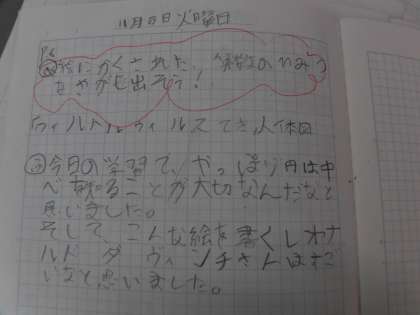 11月8日火曜日
絵にかくされた、のひみつ
をさがし出そう!
ウィルトルウィルスてき人体図
今日の学習で、やっぱり円は中
ることが大切なんだなと
思いました。
そして、こんな絵を書くレオナ
ルド ダ ヴィンチさんはすご
いなと思いました。